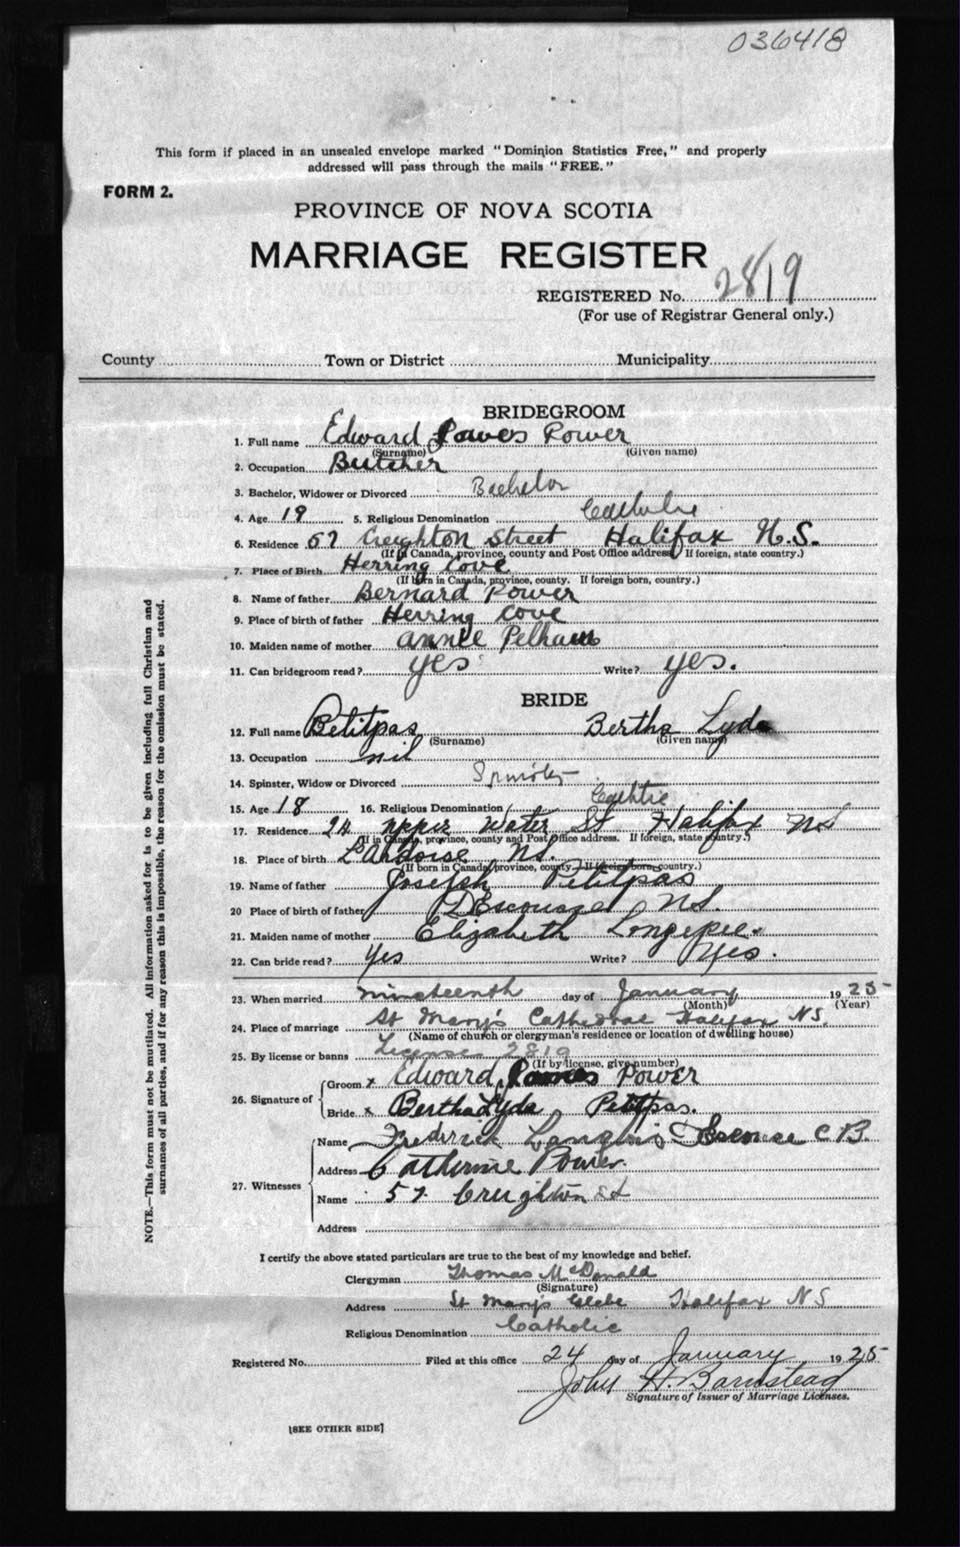 036418
This form if placed in an unsealed envelope marked "Dominion Statistics Free," and properly
addressed will pass through the mails "FREE."
FORM 2.
PROVINCE OF NOVA SCOTIA
MARRIAGE REGISTER
REGISTERED No. 2819
(For use of Registrar General only.)
County Town or District Municipality
BRIDEGROOM
1. Full name Edward Power
(Surname) (Given name)
2. Occupation Butcher
3. Bachelor, Widower or Divorced Bachelor
4. Age 19 5. Religious Denomination
6. Residence 57 Creighton Street Halifax N.S.
(If in Canada, province, county and Post Office address. If foreign, state country.)
7. Place of Birth Herring Cove
(If born in Canada, province, county. If foreign born, country.)
8. Name of father Bernard Power
9. Place of birth of father Herring Cove
10. Maiden name of mother Annie Pelham
11. Can bridegroom read? yes Write? yes.
BRIDE
12. Full name Petitpas Bertha Lyda
(Surname) (Given name)
13. Occupation nil
14. Spinster, Widow or Divorced Spinster
15. Age 18 16. Religious Denomination
17. Residence 24 upper Water St Halifax NS
(If in Canada, province, county and Post Office address. If foreign, state country.)
18. Place of birth L'Ardoise NS.
(If born in Canada, province, county. If foreign born, country.)
19. Name of father Joseph Petitpas
20 Place of birth of father NS.
21. Maiden name of mother Elizabeth
22. Can bride read? Yes Write? Yes.
23. When married nineteenth day of January 1925
(Month) (Year)
24. Place of marriage St Mary's Cathedral Halifax NS.
(Name of church or clergyman's residence or location of dwelling house)
25. By license or banns License 2819
(If by license, give number)
26. Signature of
Groom x Edward Power
Bride x Bertha Lyda Petitpas.
27. Witnesses
Name Frederick C.B.
Address Catherine Power.
Name 57 Creighton St
Address
I certify the above stated particulars are true to the best of my knowledge and belief.
Clergyman Thomas McDonald
(Signature)
Address St Mary's Glebe Halifax NS
Religious Denomination Catholic
Registered No. Filed at this office 24 day of January 1925
John H. Barnstead
Signature of Issuer of Marriage Licenses.
[SEE OTHER SIDE]
NOTE.—This form must not be mutilated. All information asked for is to be given including full Christian and
surnames of all parties, and if for any reason this is impossible, the reason for the omission must be stated.